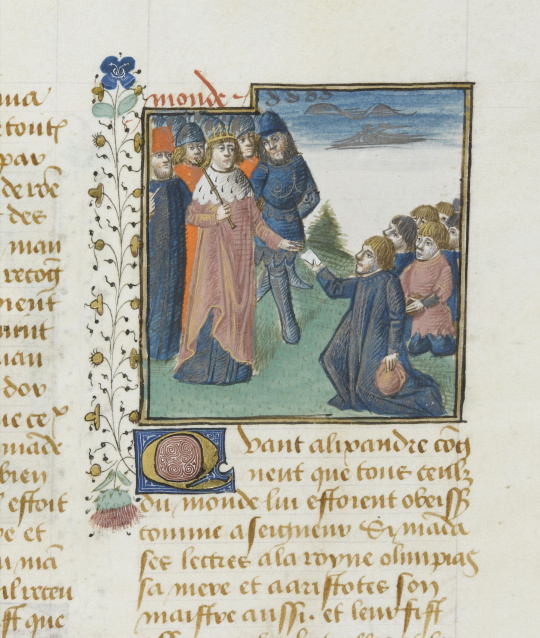 tout
par
de roe
des
man
recog
dor
made
bien
estoit
et
il receu
st que
monde
Quant alixandre cog
neut que tous ceulz
du monde lui estoient obeiss
comme a seigneur Si manda
ses lectres a la royne olimpias
sa mere et a aristotes son
maistre aussi. et leur fist